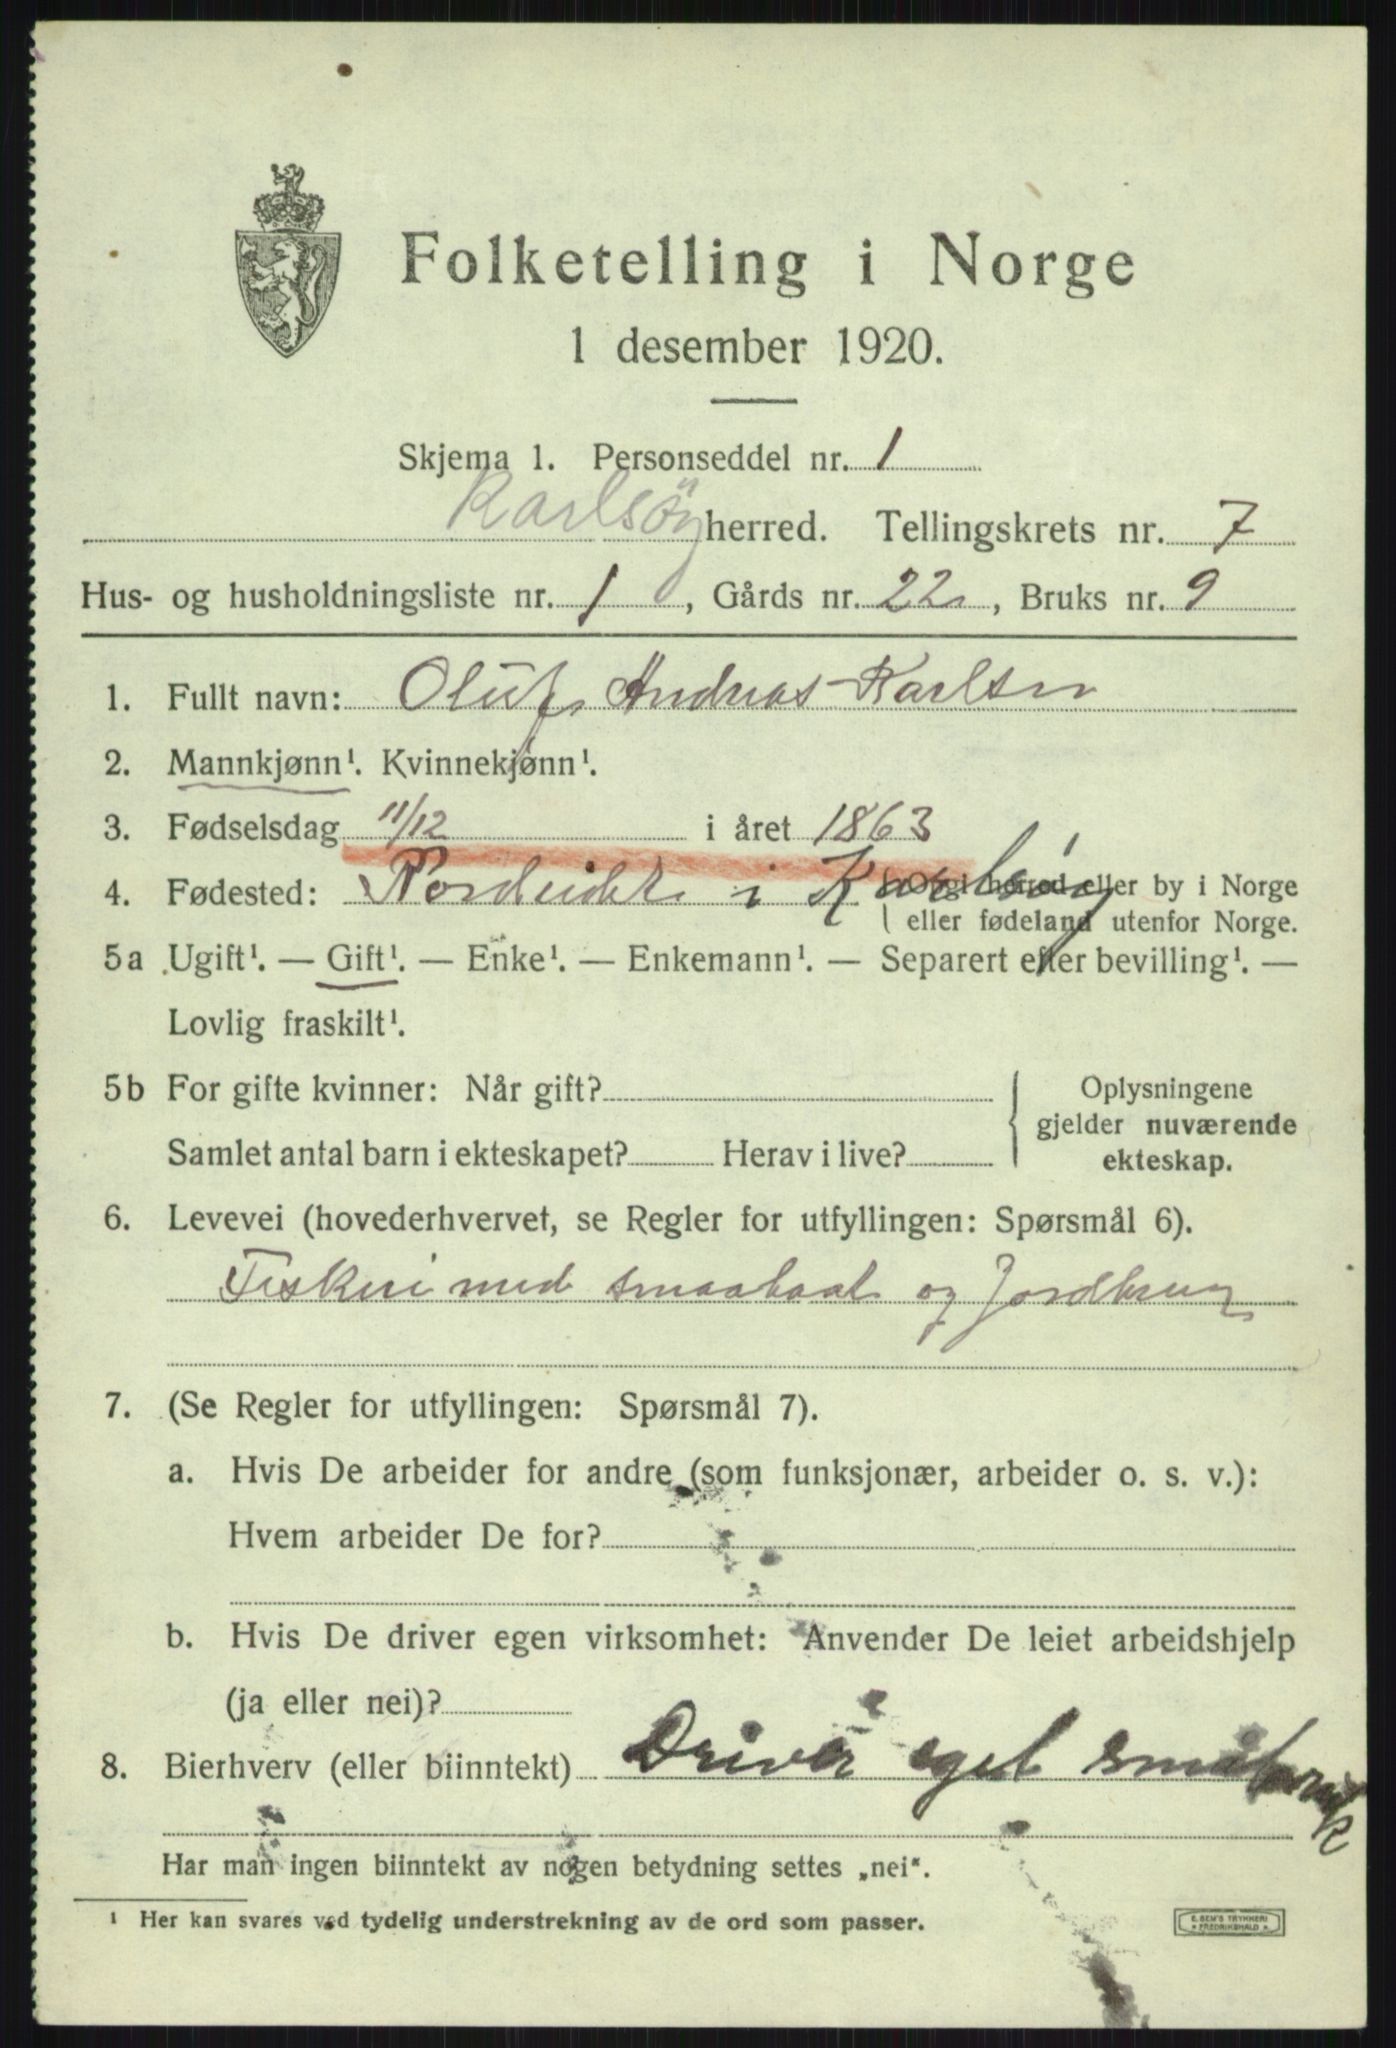 Folketelling i Norge
1 desember 1920.
Skjema 1. Personseddel nr. 1
Karlsöy herred. Tellingskrets nr. 7
Hus- og husholdningsliste nr. 1, Gårds nr. 22, Bruks nr. 9
1. Fullt navn: Oluf Andreas Karlsen
2. Mannkjønn¹. Kvinnekjønn¹.
3. Fødselsdag 11/12 i året 1863
4. Fødested: Nordeidet i Karlsöy { Opgi herred eller by i Norge
eller fødeland utenfor Norge.
5a Ugift¹. — Gift¹. — Enke¹. — Enkemann¹. — Separert efter bevilling¹. —
Lovlig fraskilt¹.
5b For gifte kvinner: Når gift? { Oplysningene
gjelder nuværende
Samlet antal barn i ekteskapet? Herav i live? ekteskap.
6. Levevei (hovederhvervet, se Regler for utfyllingen: Spørsmål 6).
Fiskeri med smaabaat og Jordbrug
7. (Se Regler for utfyllingen: Spørsmål 7).
a. Hvis De arbeider for andre (som funksjonær, arbeider o. s. v.):
Hvem arbeider De for?
b. Hvis De driver egen virksomhet: Anvender De leiet arbeidshjelp
(ja eller nei)?
8. Bierhverv (eller biinntekt) Driver eget småbruk
Har man ingen biinntekt av nogen betydning settes „nei“.
¹ Her kan svares ved tydelig understrekning av de ord som passer.
E. SEM'S TRYKKERI
FREDRIKSHALD